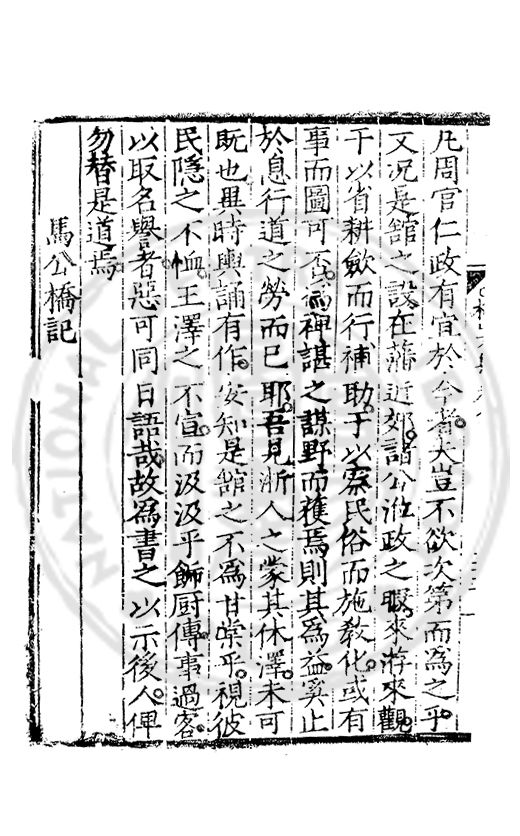 凡周官仁政有宜於今者夫豈不欲次第而為之乎
又况是舘之設在藩近郊諸公涖政之暇來游來觀
于以省耕斂而行補助于以察民俗而施教化或有
事而圖可否為禆諶之謀野而穫焉則其為益奚止
於息行道之勞而已耶吾見浙人之蒙其休澤未可
旣也異時輿誦有作安知是舘之不為甘棠乎視彼
民隱之不恤王澤之不宣而汲汲乎飾厨傳事過客
以取名譽者惡可同日語哉故為書之以示後人俾
勿替是道焉
馬公橋記